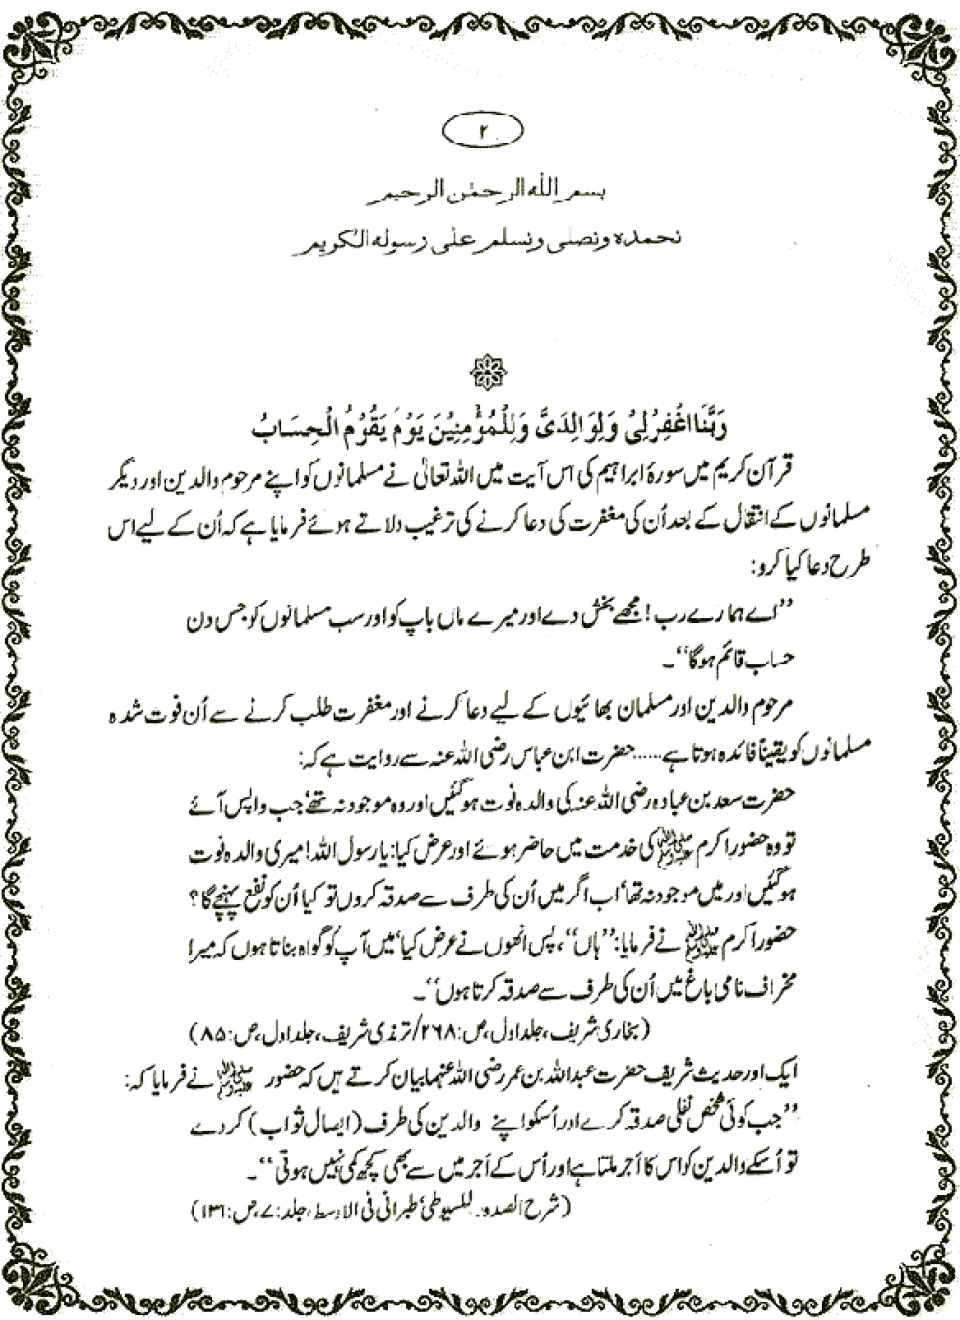 ۲
بسم الله الرحمٰن الرحیم
نحمدہ ونصلی ونسلم علی رسولہ الکریم
رَبَّنَا اغْفِرْ لِیْ وَلِوَالِدَیَّ وَلِلْمُؤْمِنِیْنَ یَوْمَ یَقُوْمُ الْحِسَابُ
قرآن کریم میں سورۂ ابراہیم کی اس آیت میں اللہ تعالیٰ نے مسلمانوں کو اپنے مرحوم والدین اور دیگر
مسلمانوں کے انتقال کے بعد اُن کی مغفرت کی دعا کرنے کی ترغیب دلاتے ہوئے فرمایا ہے کہ اُن کے لیے اس
طرح دعا کیا کرو:
”اے ہمارے رب! مجھے بخش دے اور میرے ماں باپ کو اور سب مسلمانوں کو جس دن
حساب قائم ہوگا“۔
مرحوم والدین اور مسلمان بھائیوں کے لیے دعا کرنے اور مغفرت طلب کرنے سے اُن فوت شدہ
مسلمانوں کو یقیناً فائدہ ہوتا ہے......حضرت ابن عباس رضی اللہ عنہ سے روایت ہے کہ:
حضرت سعد بن عبادہ رضی اللہ عنہ کی والدہ فوت ہوگئیں اور وہ موجود نہ تھے‘ جب واپس آئے
تو وہ حضور اکرم ﷺ کی خدمت میں حاضر ہوئے اور عرض کیا: یا رسول اللہ! میری والدہ فوت
ہوگئیں اور میں موجود نہ تھا‘ اب اگر میں اُن کی طرف سے صدقہ کروں تو کیا اُن کو نفع پہنچے گا؟
حضور اکرم ﷺ نے فرمایا: ”ہاں“، پس انھوں نے عرض کیا‘ میں آپ کو گواہ بناتا ہوں کہ میرا
مخراف نامی باغ میں اُن کی طرف سے صدقہ کرتا ہوں“۔
(بخاری شریف، جلد اول، ص: ۲۶۸/ ترمذی شریف، جلد اول، ص: ۸۵)
ایک اور حدیث شریف حضرت عبداللہ بن عمر رضی اللہ عنہما بیان کرتے ہیں کہ حضور ﷺ نے فرمایا کہ:
”جب کوئی شخص نفلی صدقہ کرے اور اسکو اپنے والدین کی طرف (ایصال ثواب) کردے
تو اُسکے والدین کو اس کا اجر ملتا ہے اور اُس کے اَجر میں سے بھی کچھ کمی نہیں ہوتی“۔
(شرح الصدور للسیوطی‘ طبرانی فی الاوسط، جلد: ۷، ص: ۱۳۱)